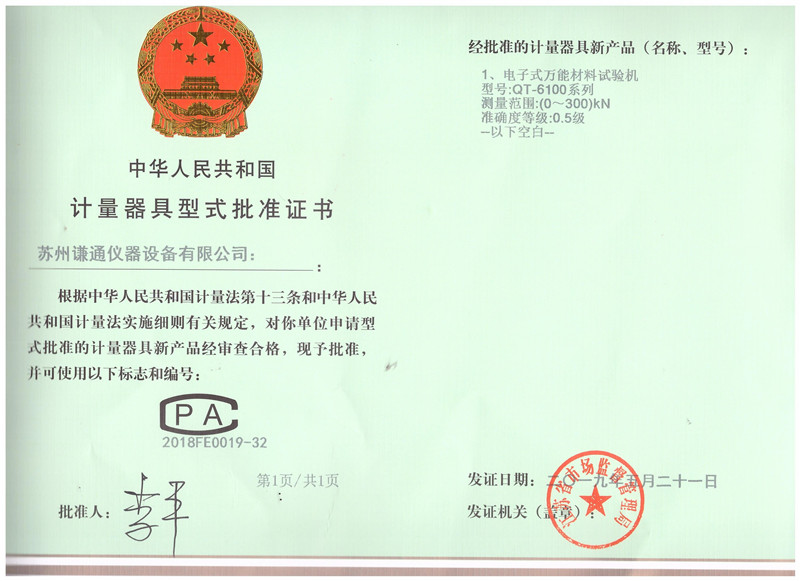 中华人民共和国
计量器具型式批准证书
苏州谦通仪器设备有限公司：
：
根据中华人民共和国计量法第十三条和中华人民
共和国计量法实施细则有关规定，对你单位申请型
式批准的计量器具新产品经审查合格，现予批准，
并可使用以下标志和编号：
CPA
2018FE0019-32
第1页/共1页
：
批准人：
李平
经批准的计量器具新产品（名称、型号）：
1、电子式万能材料试验机
型号:QT-6100系列
测量范围:(0～300)kN
准确度等级:0.5级
--以下空白--
发证日期：二〇一九年五月二十一日
发证机关（盖章）：
江苏省市场监督管理局